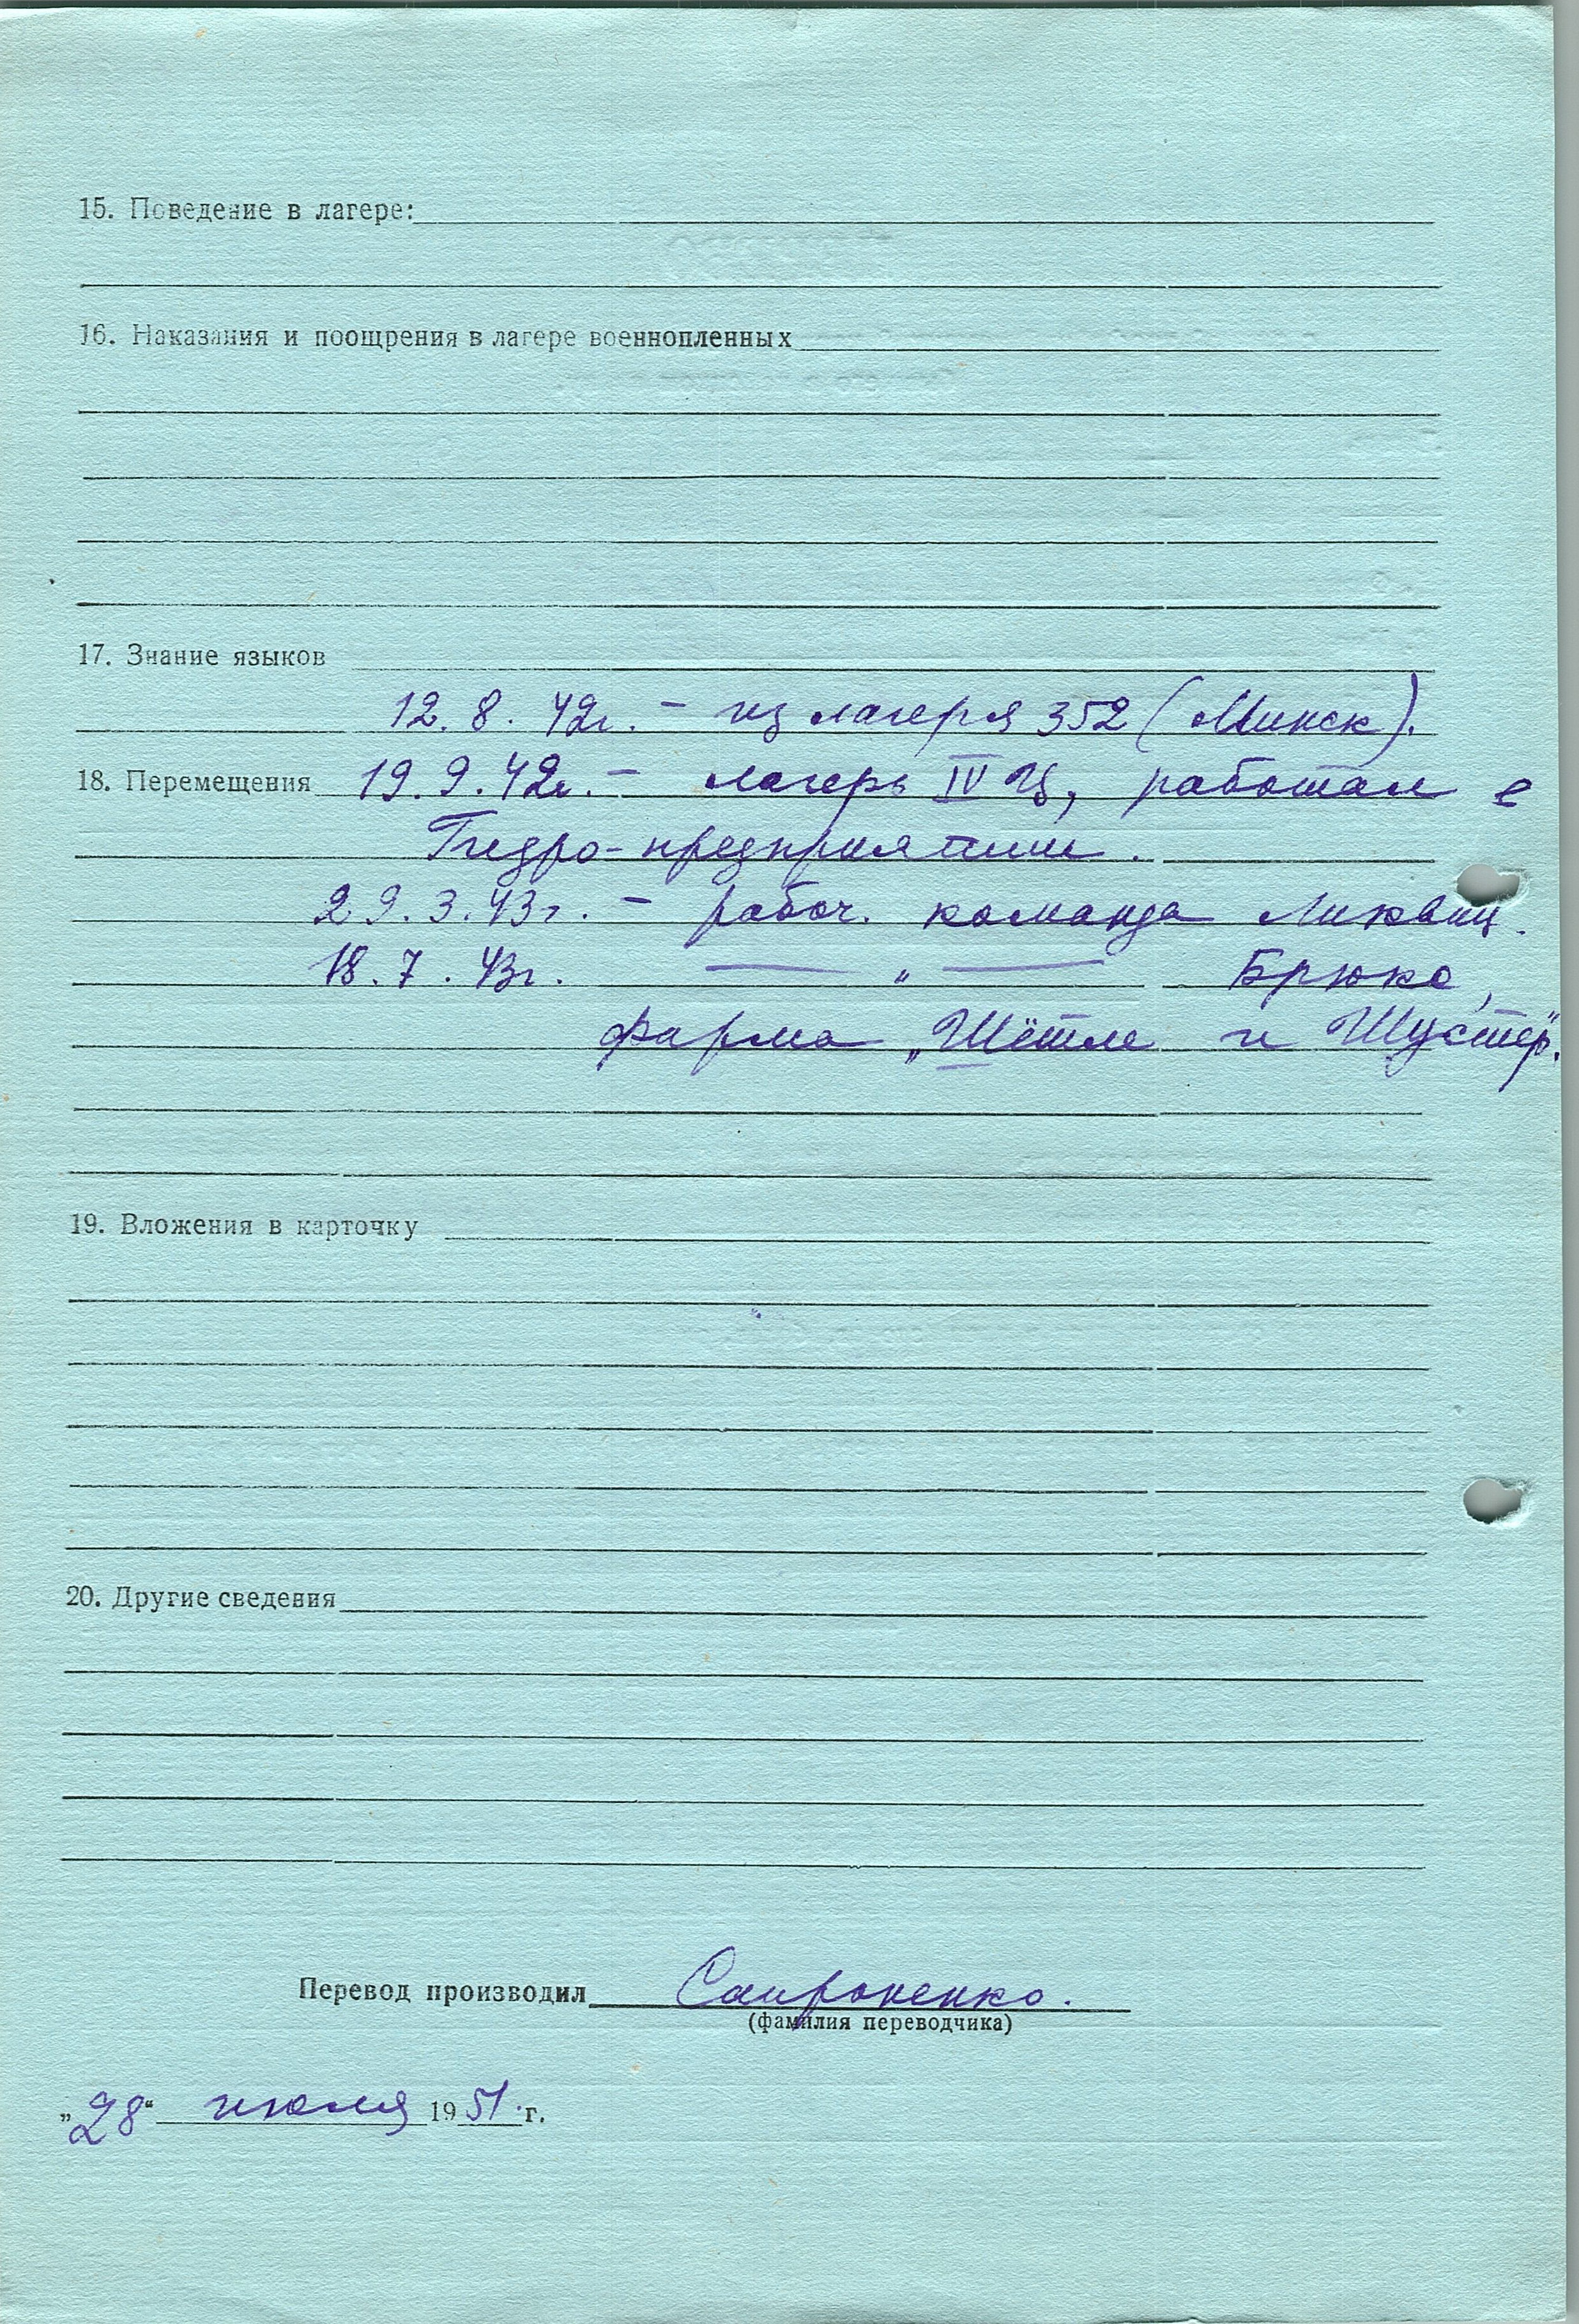 15. Поведение в лагере:
16. Наказания и поощрения в лагере военнопленных
17. Знание языков
12. 8. 42г. – из лагеря 352 (Минск).
18. Перемещения 19. 9. 42г. – лагерь IV Ц, работал в
Гидро-предприятии.
29. 3. 43г. – рабоч. команда Ликвиц.
18. 7. 43г. — „ — Брюкс,
фирма „Шётле и Шустер".
19. Вложения в карточку
20. Другие сведения
Перевод производил Сапроненко.
(фамилия переводчика)
„28“ июля 1951 г.